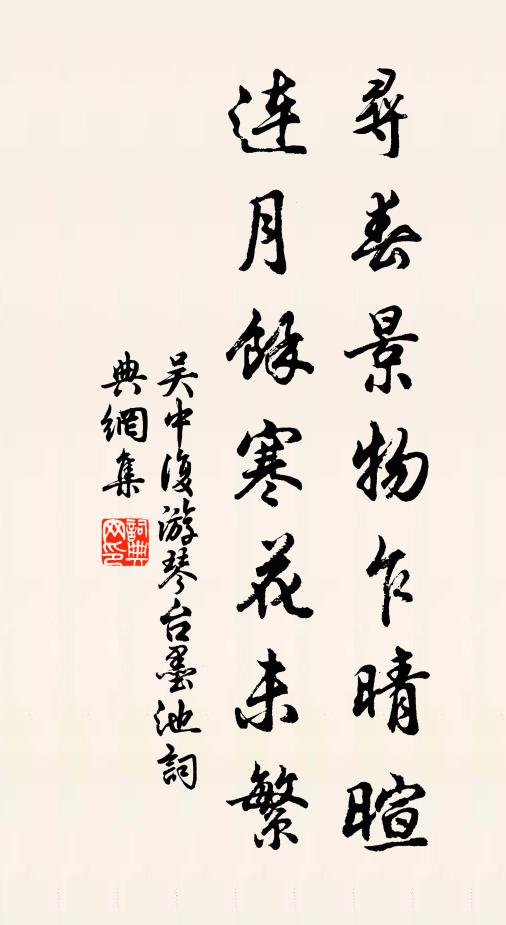 尋春景物乍晴暄
連月餘寒花未繁
吴中復游琴台墨池詞
典網集
詞典网印